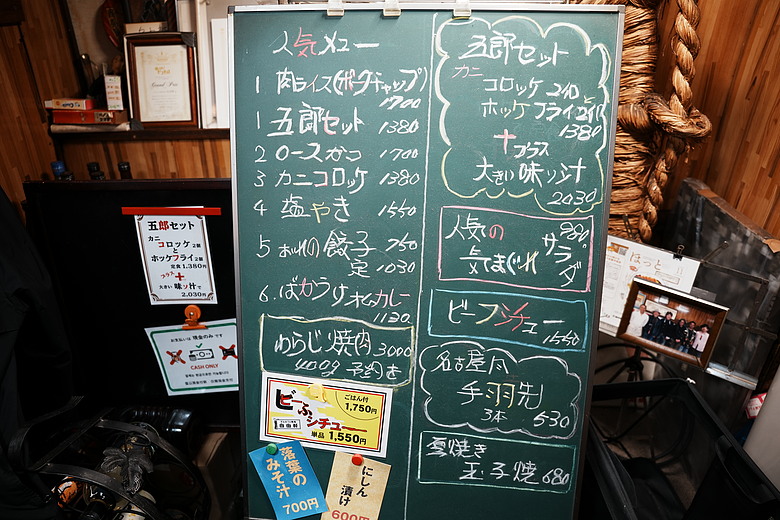 人気メニュー
1 肉ライス(ポークチャップ)
1700
1 五郎セット 1380
2 ロースカツ 1700
3 カニコロッケ 1380
4 塩やき 1550
5 おれの餃子 750
定 1030
6. ばかうけオムカレー
1130
わらじ焼肉 3000
400g 予約のき
ビーフシチュー
ごはん付
1,750円
単品 1,550円
落葉の
みそ汁
700円
にしん
漬け
600円
五郎セット
カニ
コロッケ 2個
ホッケフライ 2個
1380
+
プラス
大きい味ソ汁
2030
人気の
気まぐれ
サラダ
980
ビーフシチュー
1550
名古屋風
手羽先
3本 530
玉子焼 680
五郎セット
カニ
コロッケ2個
と
ホッケフライ2個
定食 1,380円
プラス
+
大きい 味ソ汁で
2,030円
お支払いは 現金のみ です
CASH ONLY
ほっと